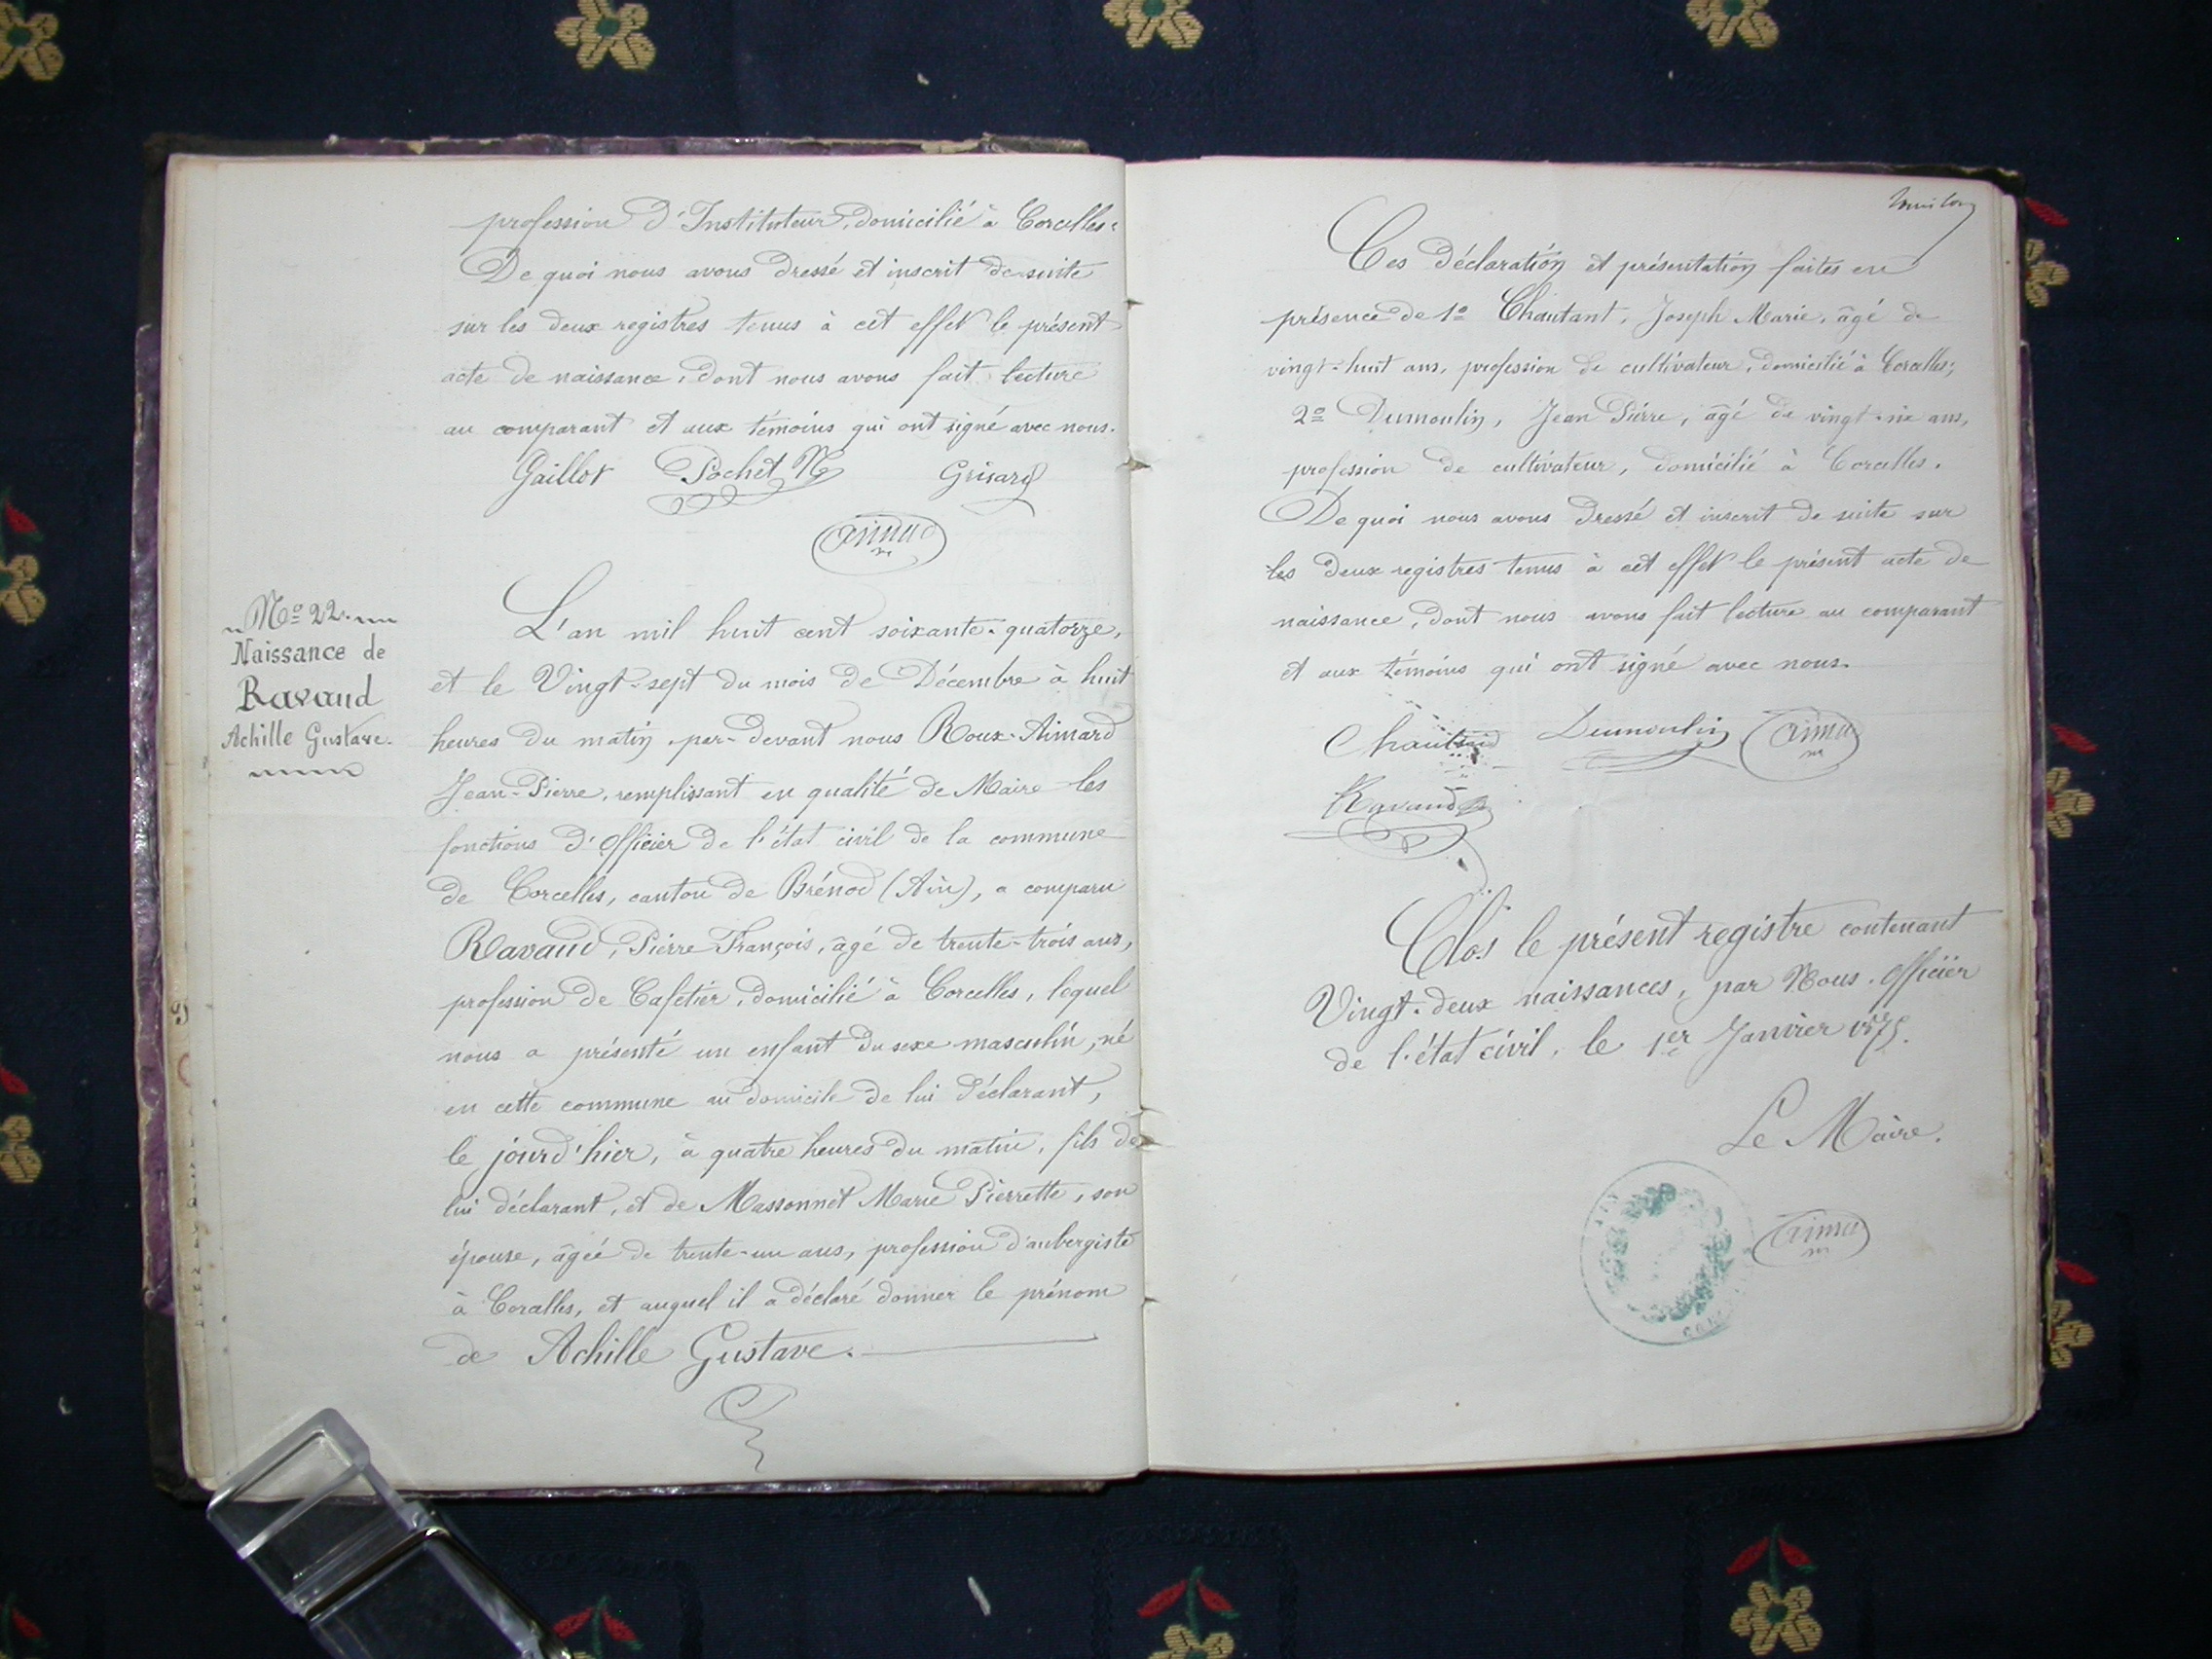 profession d'Instituteur, domicilié à Corcelles.
De quoi nous avons dressé et inscrit de suite
sur les deux registres tenus à cet effet le présent
acte de naissance, dont nous avons fait lecture
au comparant et aux témoins qui ont signé avec nous.
Gaillot Pochet Grisard
Nº 22.
Naissance de
Ravaud
Achille Gustave.
L'an mil huit cent soixante-quatorze,
et le Vingt-sept du mois de Décembre à huit
heures du matin, par-devant nous Roux-Aimard
Jean-Pierre, remplissant en qualité de Maire les
fonctions d'Officier de l'état civil de la commune
de Corcelles, canton de Brénod (Ain), a comparu
Ravaud, Pierre François, âgé de trente-trois ans,
profession de Cafetier, domicilié à Corcelles, lequel
nous a présenté un enfant du sexe masculin, né
en cette commune au domicile de lui déclarant,
le jourd'hier, à quatre heures du matin, fils de
lui déclarant, et de Massonnet Marie Pierrette, son
épouse, âgée de trente-un ans, profession d'aubergiste
à Corcelles, et auquel il a déclaré donner le prénom
de Achille Gustave.
Ces déclaration et présentation faites en
présence de 1º Chautant, Joseph Marie, âgé de
vingt-huit ans, profession de cultivateur, domicilié à Corcelles;
2º Dumoulin, Jean Pierre, âgé de vingt-six ans,
profession de cultivateur, domicilié à Corcelles.
De quoi nous avons dressé et inscrit de suite sur
les deux registres tenus à cet effet le présent acte de
naissance, dont nous avons fait lecture au comparant
et aux témoins qui ont signé avec nous.
Dumoulin
Ravaud
Clos le présent registre contenant
Vingt-deux naissances, par Nous, Officier
de l'état civil, le 1er Janvier 1875.
Le Maire.